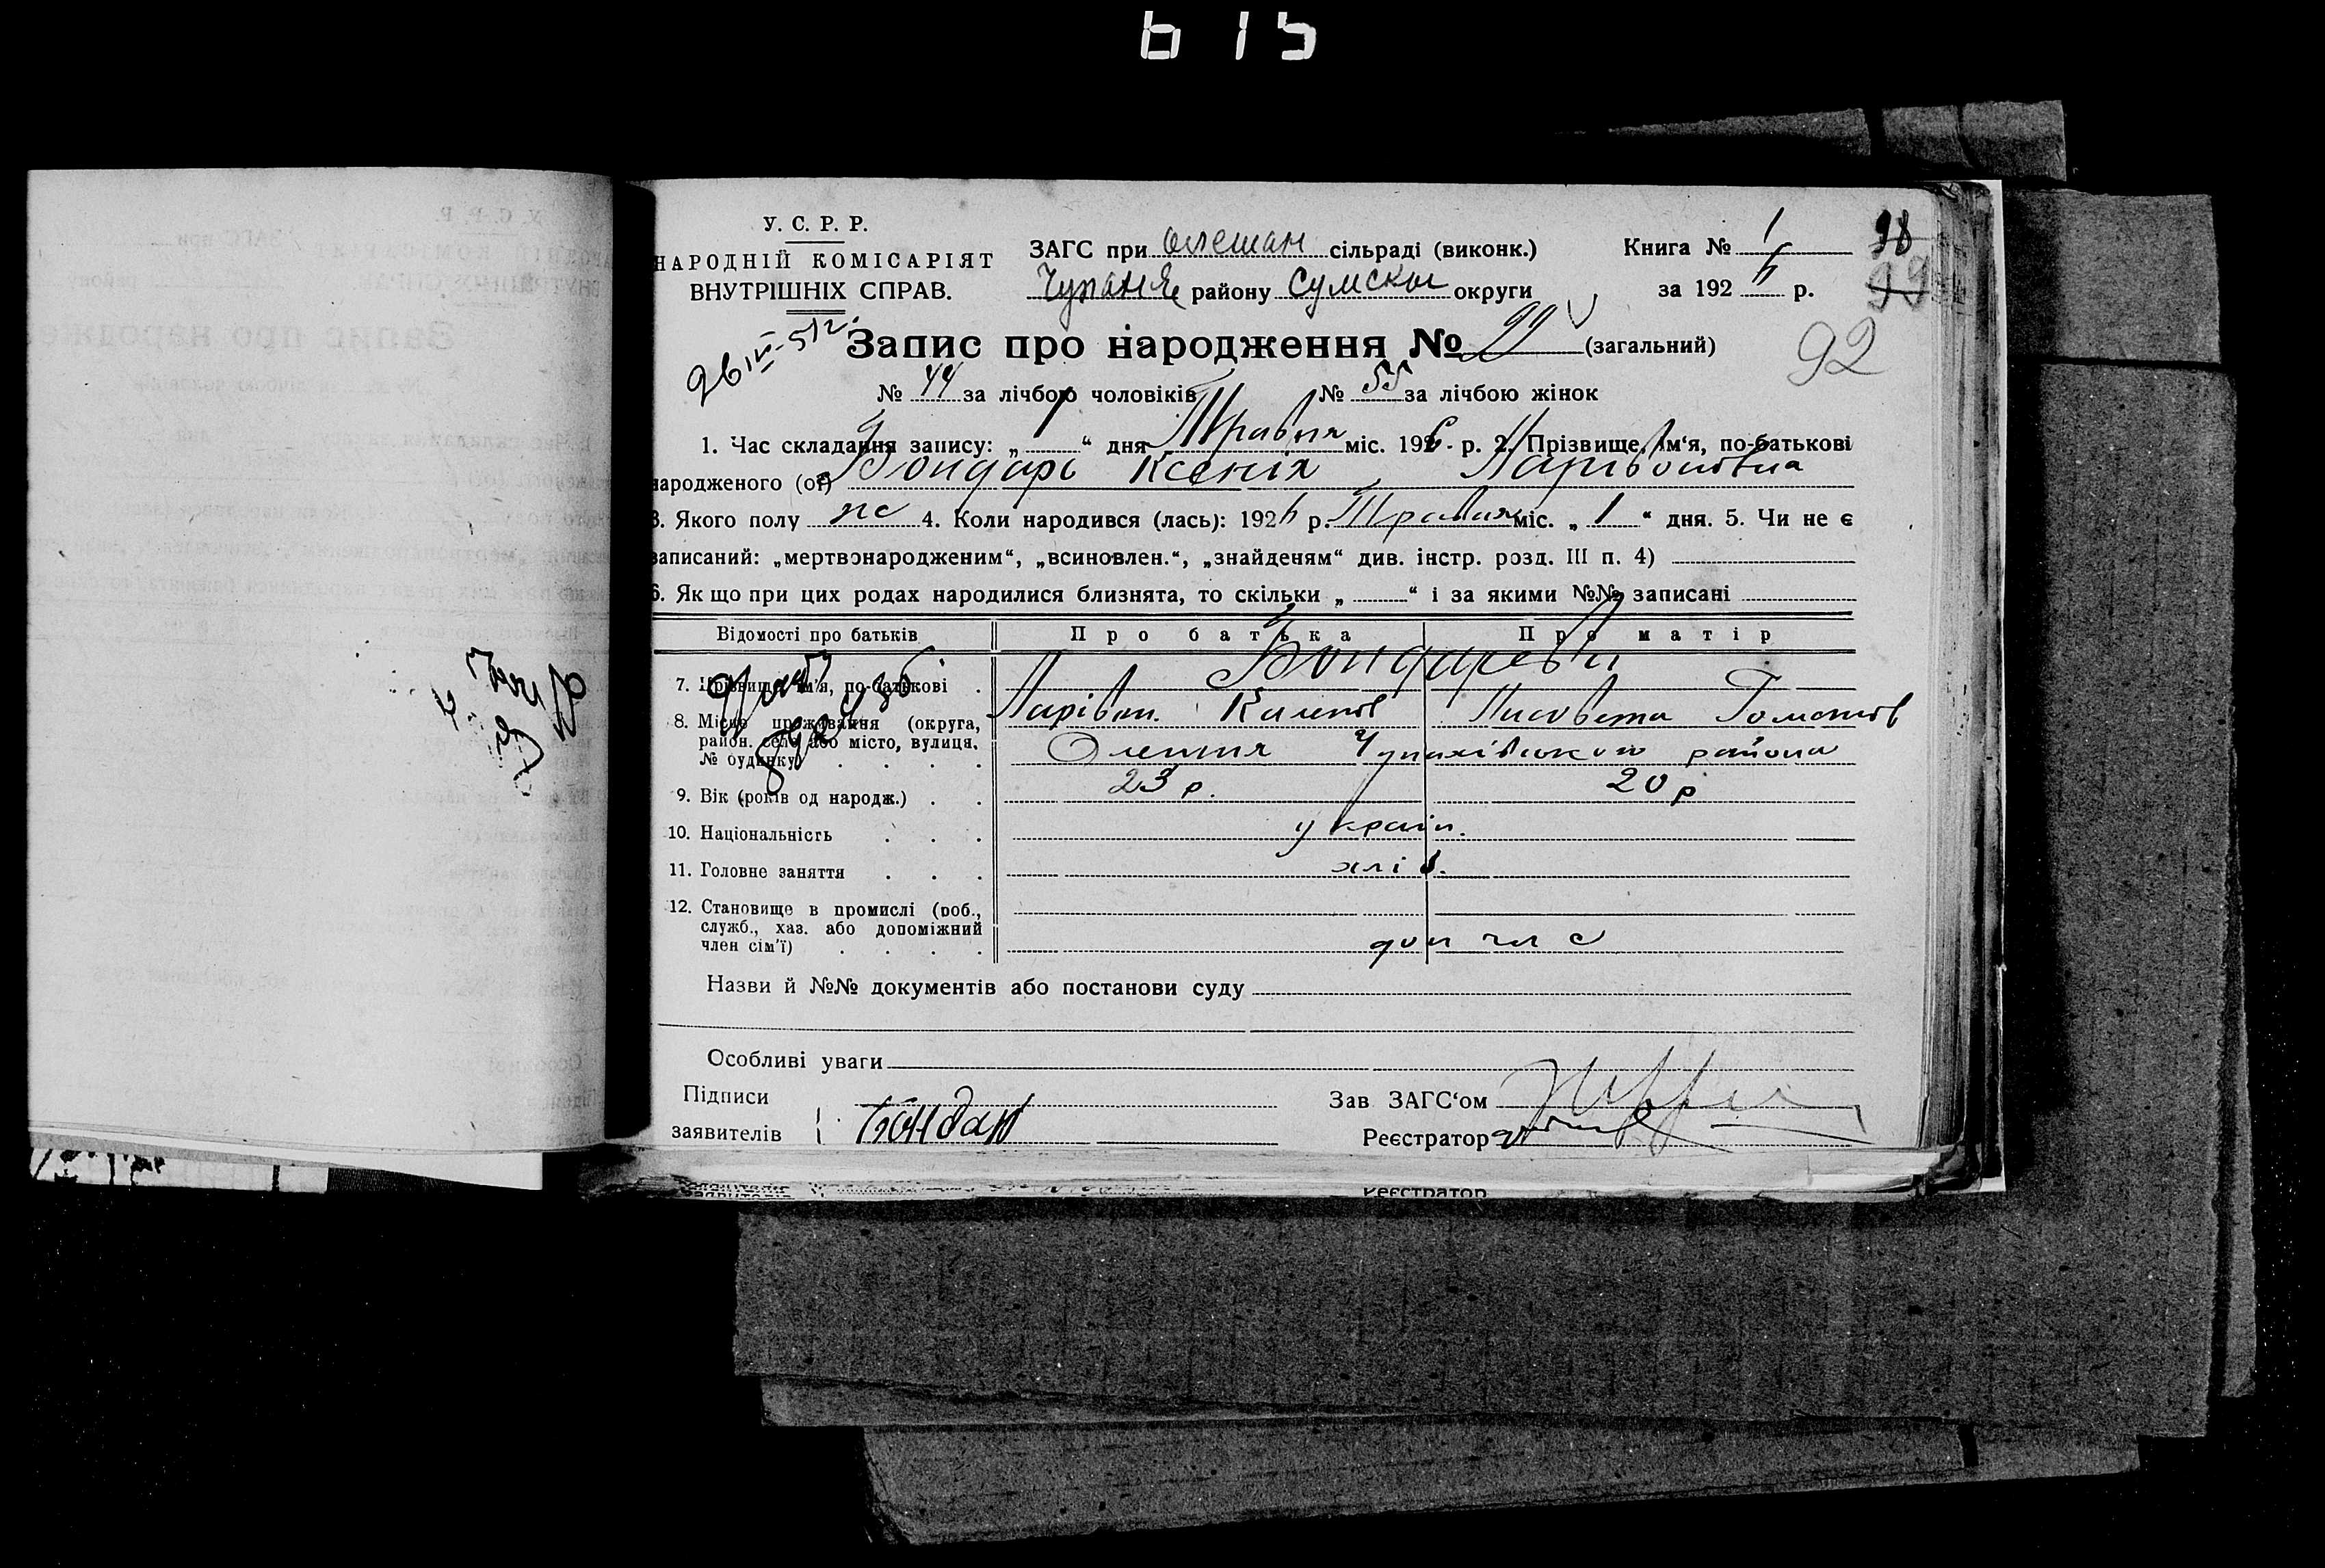 615
У. С. Р. Р.
НАРОДНІЙ КОМІСАРІЯТ
ВНУТРІШНІХ СПРАВ.
ЗАГС при Олешан сільраді (виконк.)
Чупах района Сумской округи
Книга № 1
за 1926 р.
98
99
92
26 IV-51г.
Запис про народження № 99 (загальний)
№ 44 за лічбою чоловіків № 55 за лічбою жінок
1. Час складання запису: „ 1 “ дня Травня міс. 1926 - р. 2. Прізвище, ім‘я, по-батькові
народженого (ої) Бондарь Ксенія Ларівонівна
3. Якого полу жс 4. Коли народився (лась): 1926 р. Травня міс. „ 1 “ дня. 5. Чи не є
записаний: „мертвонародженим“, „всиновлен.“, „знайденям“ див. інстр. розд. III п. 4)
6. Як що при цих родах народилися близнята, то скільки „ “ і за якими №№ записані
Відомості про батьків Про батька Про матір
7. Прізвище, ім‘я, по-батькові Бондареви
Ларівон Лисовета
8. Місце проживання (округа,
район. село або місто, вулиця,
№ будинку) Олешня Чупахівского района
9. Вік (років од народж.) 23 р. 20 р
10. Національність україн.
11. Головне заняття хліб.
12. Становище в промислі (роб.,
служб., хаз. або допоміжний
член сім‘ї) доп чл с
Назви й №№ документів або постанови суду
Особливі уваги
Підписи
заявителів Бондар
Зав ЗАГС‘ом
Реєстратор
заявителів
Реєстратор